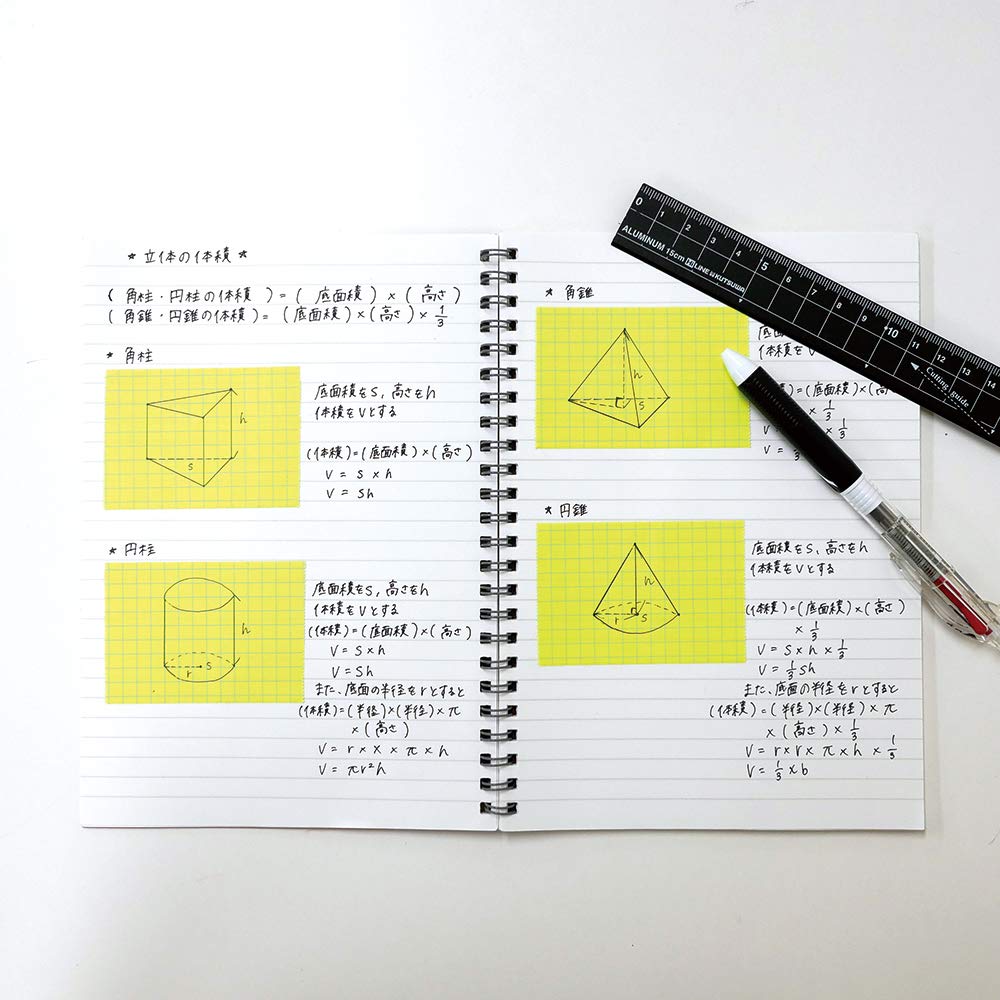 ★ 立体の体積 ★
( 角柱・円柱の体積 ) = ( 底面積 ) × ( 高さ )
( 角錐・円錐の体積 ) = ( 底面積 ) × ( 高さ ) × 1/3
★ 角柱
h
S
底面積をS, 高さをh
体積をVとする
(体積) = (底面積) × (高さ)
V = S × h
V = Sh
★ 円柱
h
r S
底面積をS, 高さをh
体積をVとする
(体積) = (底面積) × (高さ)
V = S × h
V = Sh
また、底面の半径をrとすると
(体積) = (半径) × (半径) × π
× (高さ)
V = r × X × π × h
V = πr²h
★ 角錐
h
S
底面
体積をV
) = (底面積) × (高さ
× 1/3
× 1/3
V =
★ 円錐
h
r S
底面積をS、高さをh
体積をVとする
(体積) = (底面積) × (高さ)
× 1/3
V = S × h × 1/3
V = 1/3 Sh
また、底面の半径をrとすると
(体積) = (半径) × (半径) × π
× (高さ) × 1/3
V = r × r × π × h × 1/3
V = 1/3 × b
0 1 2 3 4 5 6 7 8 9 10 11 12 13 14
ALUMINUM 15cm LINE by KUTSUWA
Cutting guide